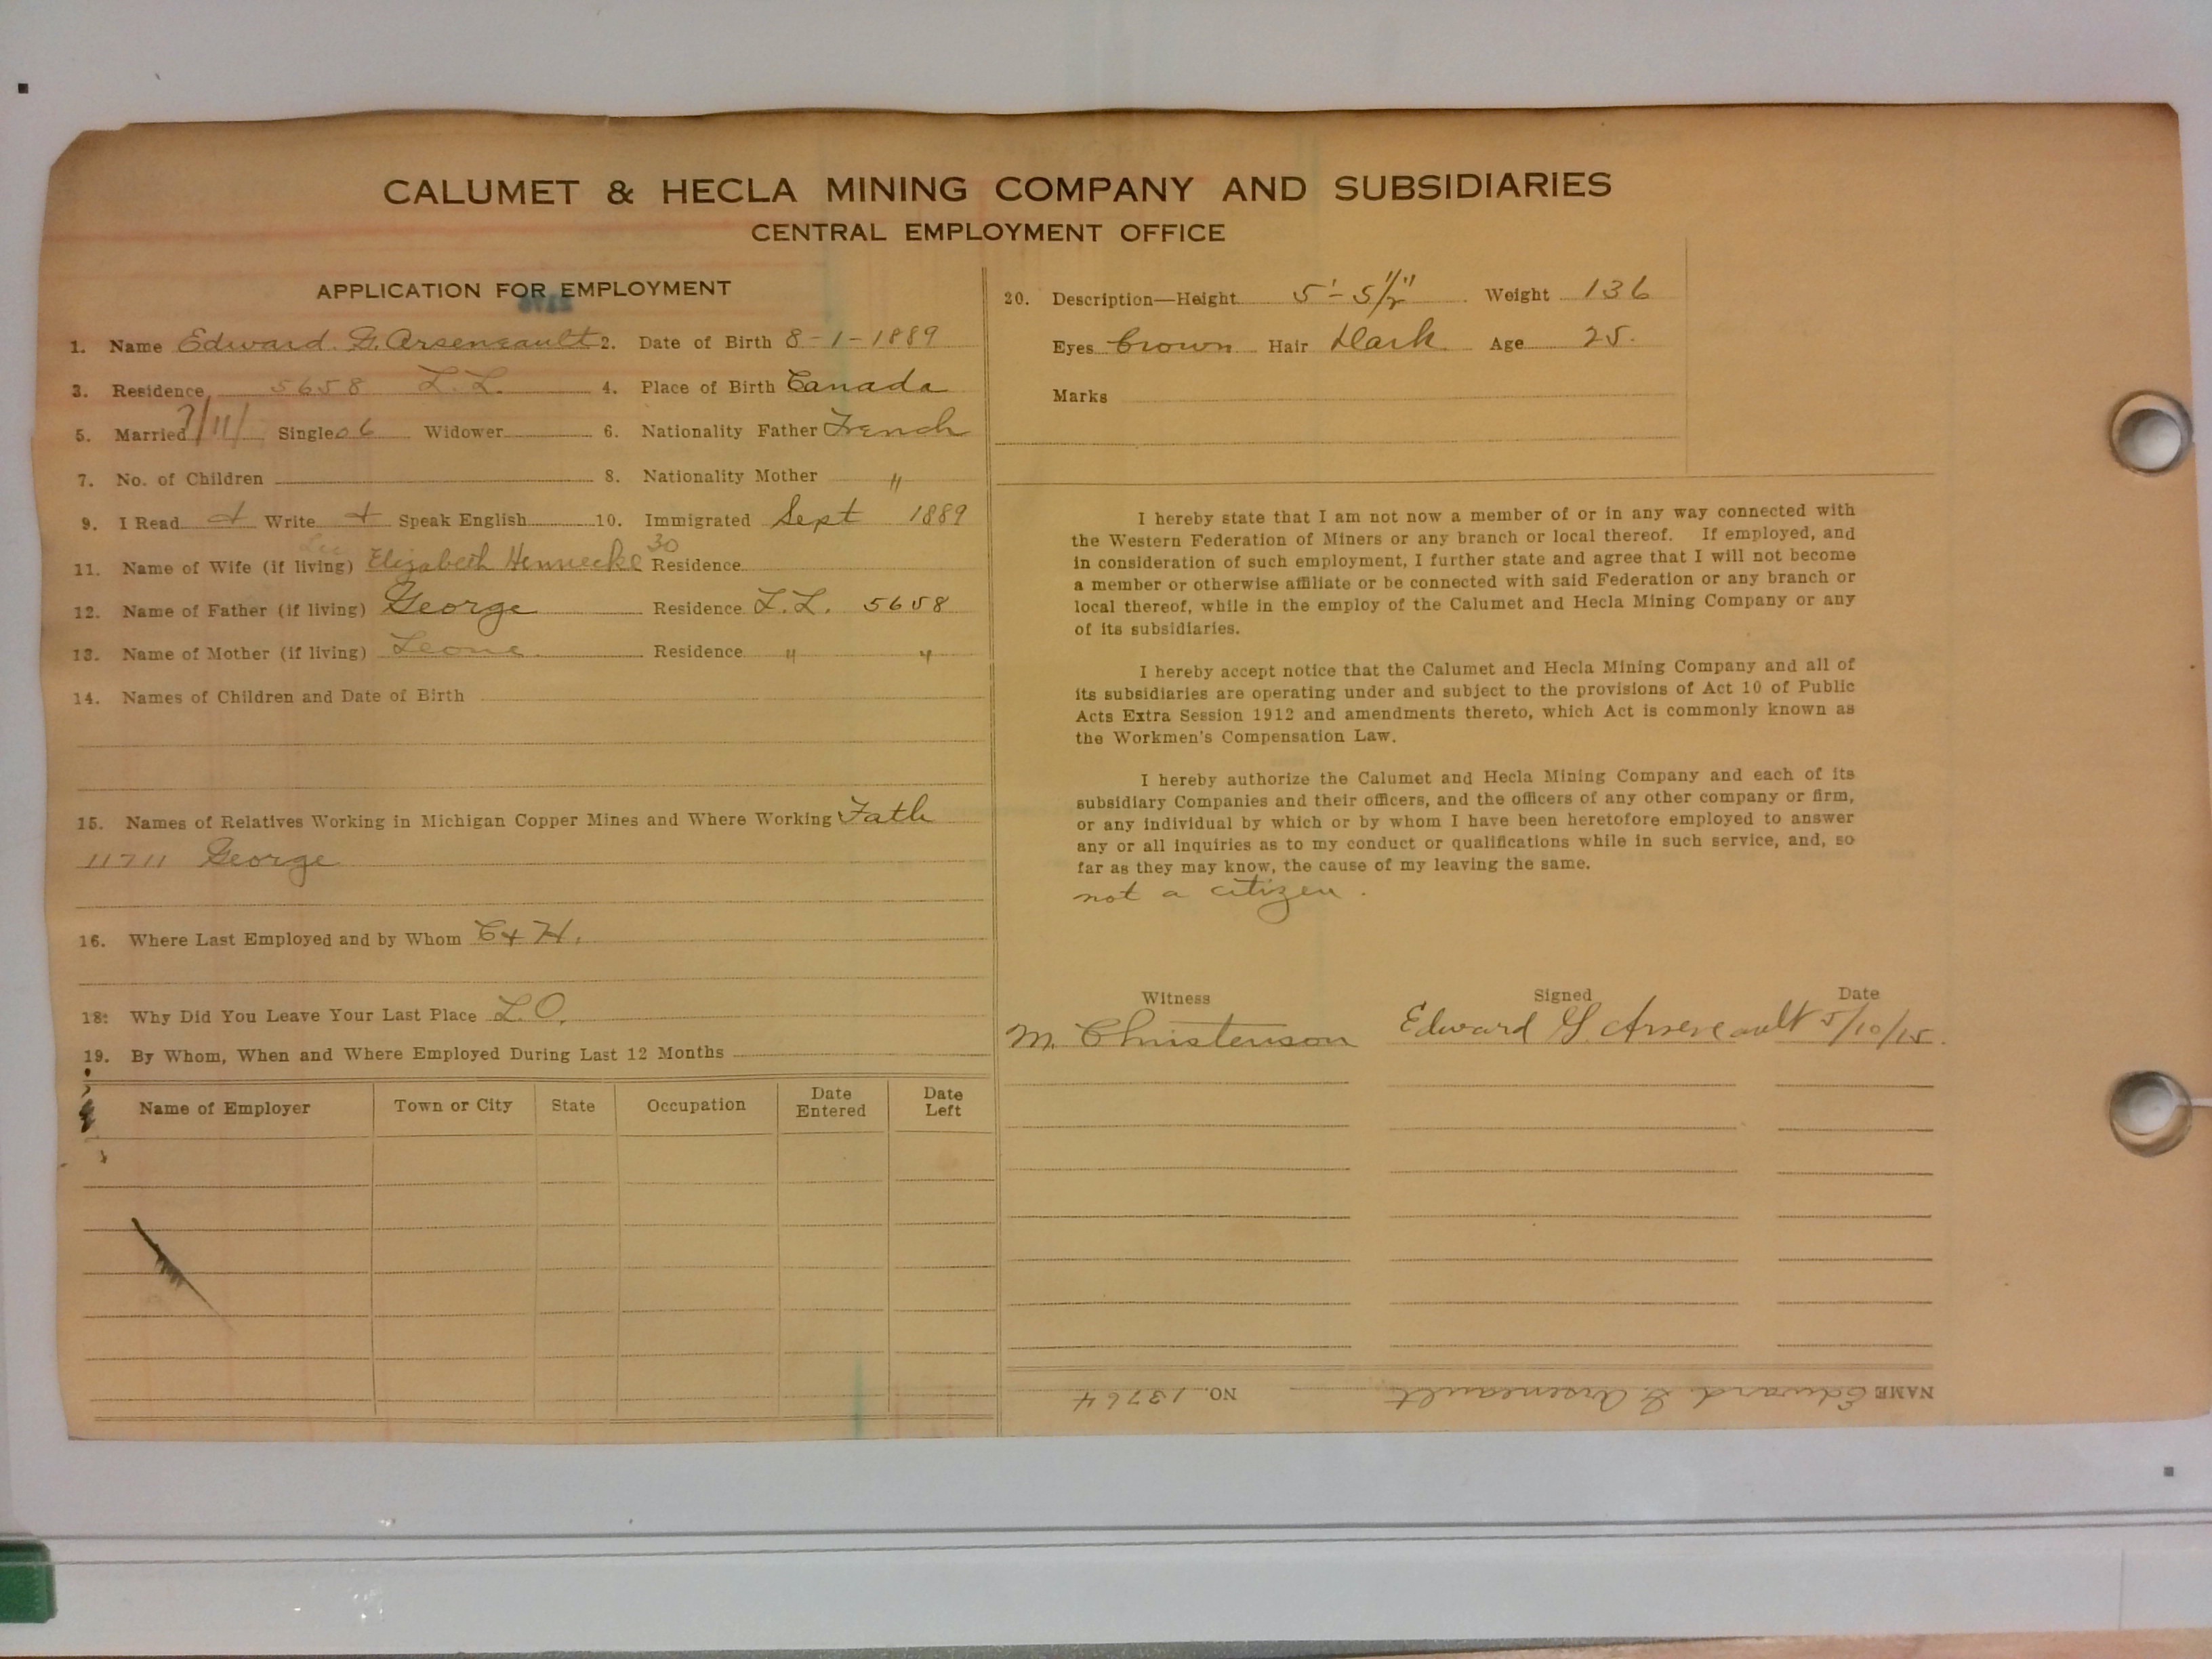 CALUMET & HECLA MINING COMPANY AND SUBSIDIARIES
CENTRAL EMPLOYMENT OFFICE
APPLICATION FOR EMPLOYMENT
1. Name Edward. G. Arseneault 2. Date of Birth 8-1-1889
3. Residence 5658 L.L. 4. Place of Birth Canada
5. Married 7/11/ Single Widower 6. Nationality Father French
7. No. of Children 8. Nationality Mother "
9. I Read + Write + Speak English 10. Immigrated Sept 1889
11. Name of Wife (if living) Elizabeth Hennecke 30 Residence
12. Name of Father (if living) George Residence L.L. 5658
13. Name of Mother (if living) Leone Residence " "
14. Names of Children and Date of Birth
15. Names of Relatives Working in Michigan Copper Mines and Where Working Fath
11711 George
16. Where Last Employed and by Whom C + H.
18: Why Did You Leave Your Last Place L.O.
19. By Whom, When and Where Employed During Last 12 Months
Name of Employer Town or City State Occupation Date Entered Date Left
20. Description—Height 5'-5 1/2" Weight 136
Eyes brown Hair Dark Age 25.
Marks
I hereby state that I am not now a member of or in any way connected with
the Western Federation of Miners or any branch or local thereof. If employed, and
in consideration of such employment, I further state and agree that I will not become
a member or otherwise affiliate or be connected with said Federation or any branch or
local thereof, while in the employ of the Calumet and Hecla Mining Company or any
of its subsidiaries.
I hereby accept notice that the Calumet and Hecla Mining Company and all of
its subsidiaries are operating under and subject to the provisions of Act 10 of Public
Acts Extra Session 1912 and amendments thereto, which Act is commonly known as
the Workmen's Compensation Law.
I hereby authorize the Calumet and Hecla Mining Company and each of its
subsidiary Companies and their officers, and the officers of any other company or firm,
or any individual by which or by whom I have been heretofore employed to answer
any or all inquiries as to my conduct or qualifications while in such service, and, so
far as they may know, the cause of my leaving the same.
not a citizen.
Witness Signed Date
M. Christenson Edward G. Arseneault 5/10/15.
NAME Edward G Arseneault NO. 13764